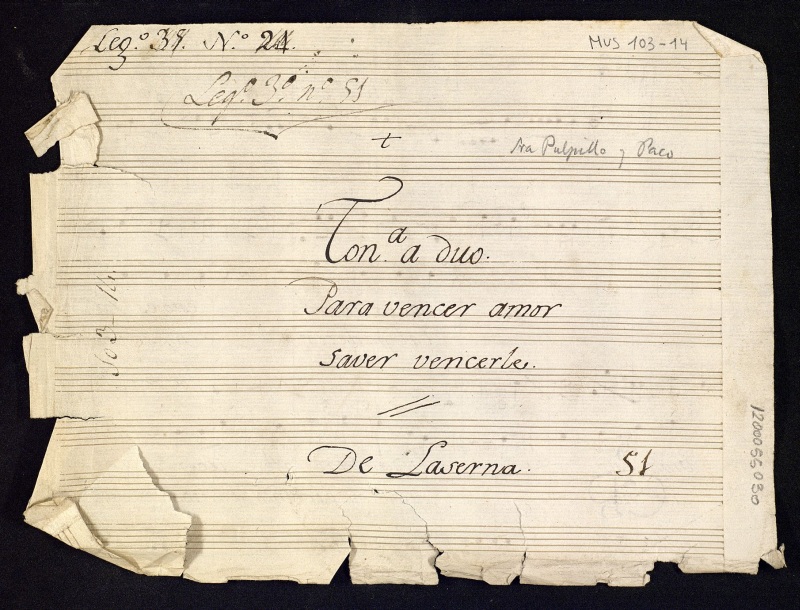 Leg.º 37. N.º 24.
MUS 103-14
Leg.º 3.º n.º 51
+
Sra Pulpillo y Paco
Ton.ª a duo.
Para vencer amor
saver vencerle.
De Laserna. 51
103-14.
1200066030